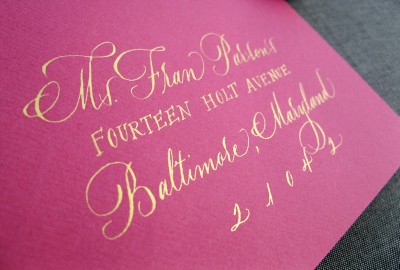 Ms. Fran Parsons
FOURTEEN HOLT AVENUE
Baltimore, Maryland
21042